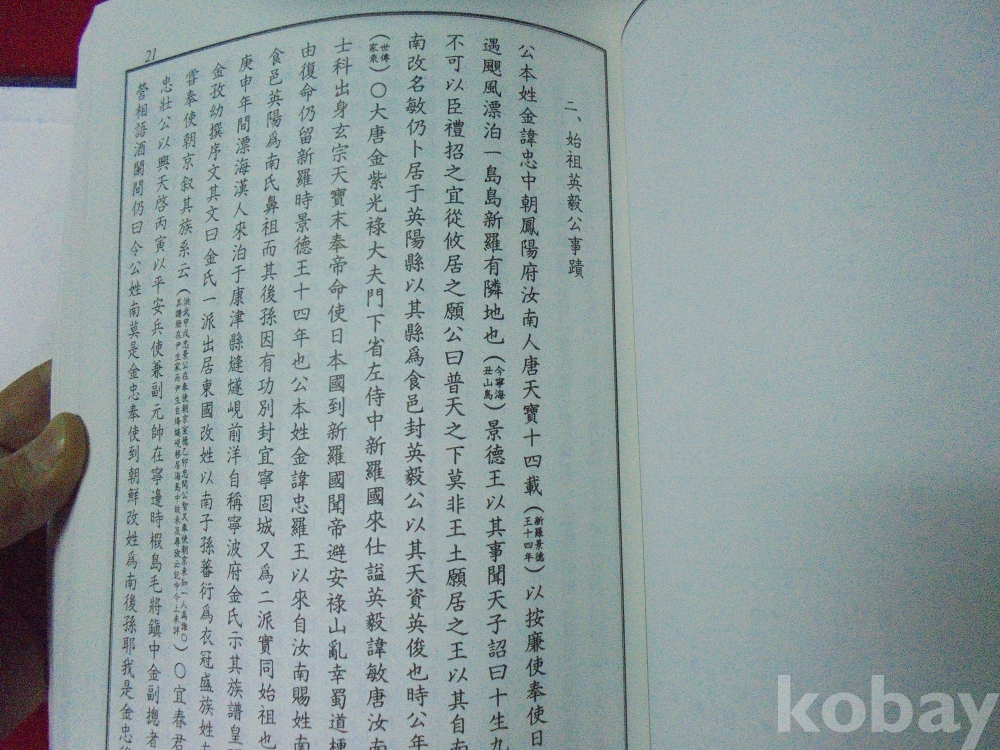 二、始祖英毅公事蹟
公本姓金諱忠中朝鳳陽府汝南人唐天寶十四載(新羅景德王十四年)以按廉使奉使日
遇颶風漂泊一島島新羅有隣地也(今寧海丑山島)景德王以其事聞天子詔曰十生九
不可以臣禮招之宜從攸居之願公曰普天之下莫非王土願居之王以其自南
南改名敏仍卜居于英陽縣以其縣爲食邑封英毅公以其天資英俊也時公年
(世傳家乘)〇大唐金紫光祿大夫門下省左侍中新羅國來仕謚英毅諱敏唐汝南
士科出身玄宗天寶末奉帝命使日本國到新羅國聞帝避安祿山亂幸蜀道梗
由復命仍留新羅時景德王十四年也公本姓金諱忠羅王以來自汝南賜姓南
食邑英陽爲南氏鼻祖而其後孫因有功別封宜寧固城又爲二派實同始祖也
庚申年間漂海漢人來泊于康津縣縫燧峴前洋自稱寧波府金氏示其族譜皇
金孜幼撰序文其文曰金氏一派出居東國改姓以南子孫蕃衍爲衣冠盛族姓
嘗奉使朝京叙其族系云 〇宜春君
忠壯公以興天啓丙寅以平安兵使兼副元帥在寧邊時椵島毛將鎭中金副摠者
營相語酒闌問仍曰令公姓南莫是金忠奉使到朝鮮改姓爲南後孫耶我是金忠後
21
kobay